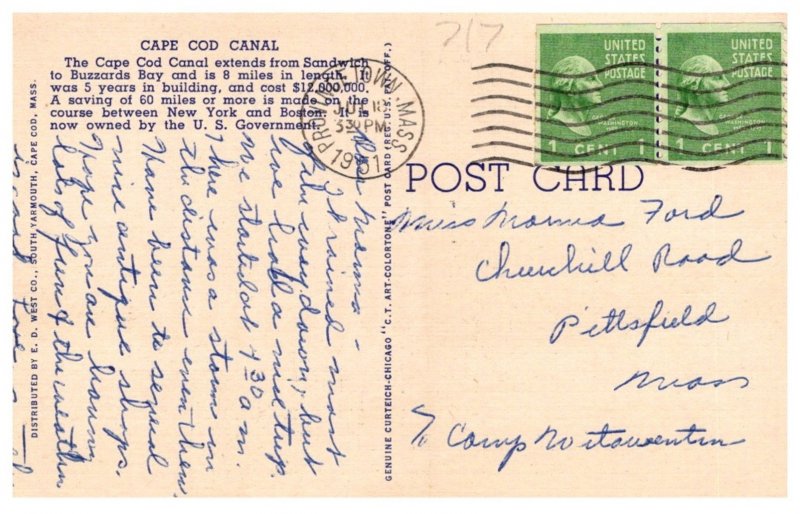 717
CAPE COD CANAL
The Cape Cod Canal extends from Sandwich
to Buzzards Bay and is 8 miles in length. It
was 5 years in building, and cost $12,000,000.
A saving of 60 miles or more is made on the
course between New York and Boston. It is
now owned by the U. S. Government.
PROVINCETOWN, MASS.
JUL 18
330 PM
1951
UNITED
STATES
POSTAGE
GEORGE
WASHINGTON
1 CENT 1
UNITED
STATES
POSTAGE
GEORGE
WASHINGTON
1 CENT 1
POST CARD
Miss Marma Ford
Churchill Road
Pittsfield
Mass
% Camp
DISTRIBUTED BY E. D. WEST CO., SOUTH YARMOUTH, CAPE COD, MASS.
GENUINE CURTEICH-CHICAGO "C.T. ART-COLORTONE" POST CARD (REG. U.S. PAT. OFF.)
Marma -
It rained most
of the way down, but
we had a nice trip.
We started at 4 30 a.m.
There was a storm in
the distance even then.
Have been to several
nice antique shops.
Hope you are having
lots of fun & the weather
is good. Love